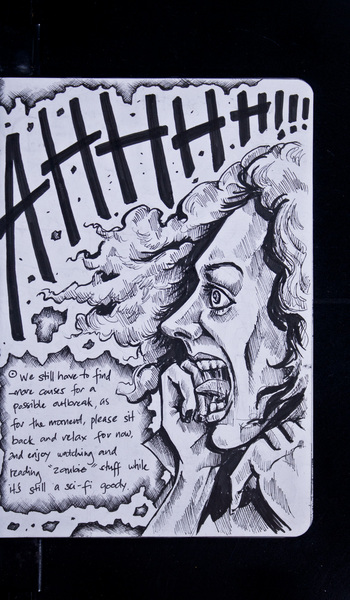 AHHHHH!!!
⊙ We still have to find
more causes for a
possible outbreak, as
for the moment, please sit
back and relax for now,
and enjoy watching and
reading "zombie" stuff while
it's still a sci-fi goody